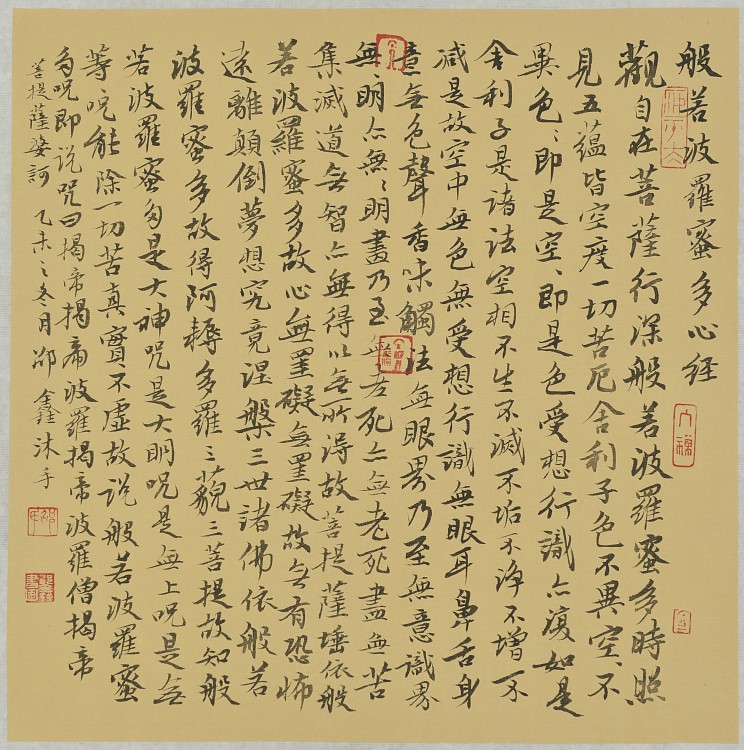 般若波羅蜜多心经
觀自在菩薩行深般若波羅蜜多時照
見五蕴皆空度一切苦厄舍利子色不異空、不
異色、即是空、即是色受想行識亦復如是
舍利子是诸法空相不生不滅不垢不净不增不
减是故空中無色無受想行識無眼耳鼻舌身
意无色聲香味觸法無眼界乃至無意識界
無、明亦無、明盡乃至無老死亦無老死盡無苦
集滅道无智亦無得以無所得故菩提薩埵依般
若波羅蜜多故心無罣礙無罣礙故无有恐怖
遠離顛倒夢想究竟涅槃三世諸佛依般若
波羅蜜多故得阿耨多羅三藐三菩提故知般
若波羅蜜多是大神咒是大明咒是無上咒是无
等咒能除一切苦真實不虚故说般若波羅蜜
多咒即说咒曰揭帝揭帝波羅揭帝波羅僧揭帝
菩提薩婆訶 乙未之冬月邵鑫沐手